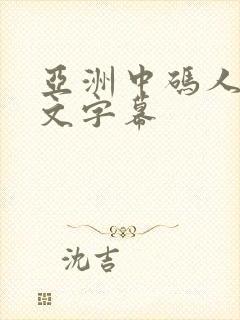 亞洲中碼人
文字幕
沈吉